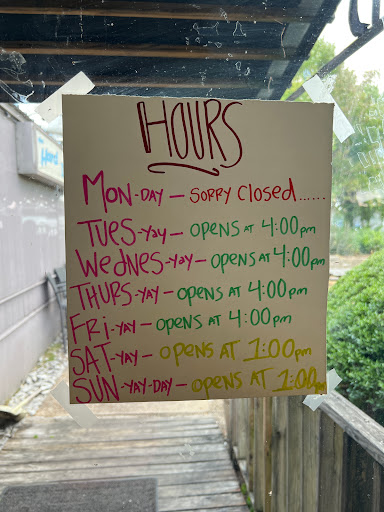 HOURS
MON-DAY – SORRY Closed......
TUES-Yay – OPENS AT 4:00pm
WEDNES-Yay – OPENS AT 4:00pm
THURS-YAY – OPENS AT 4:00pm
FRi-YAY – OPENS AT 4:00pm
SAT-YAY – OPENS AT 1:00pm
SUN-YAY-DAY – OPENS AT 1:00pm